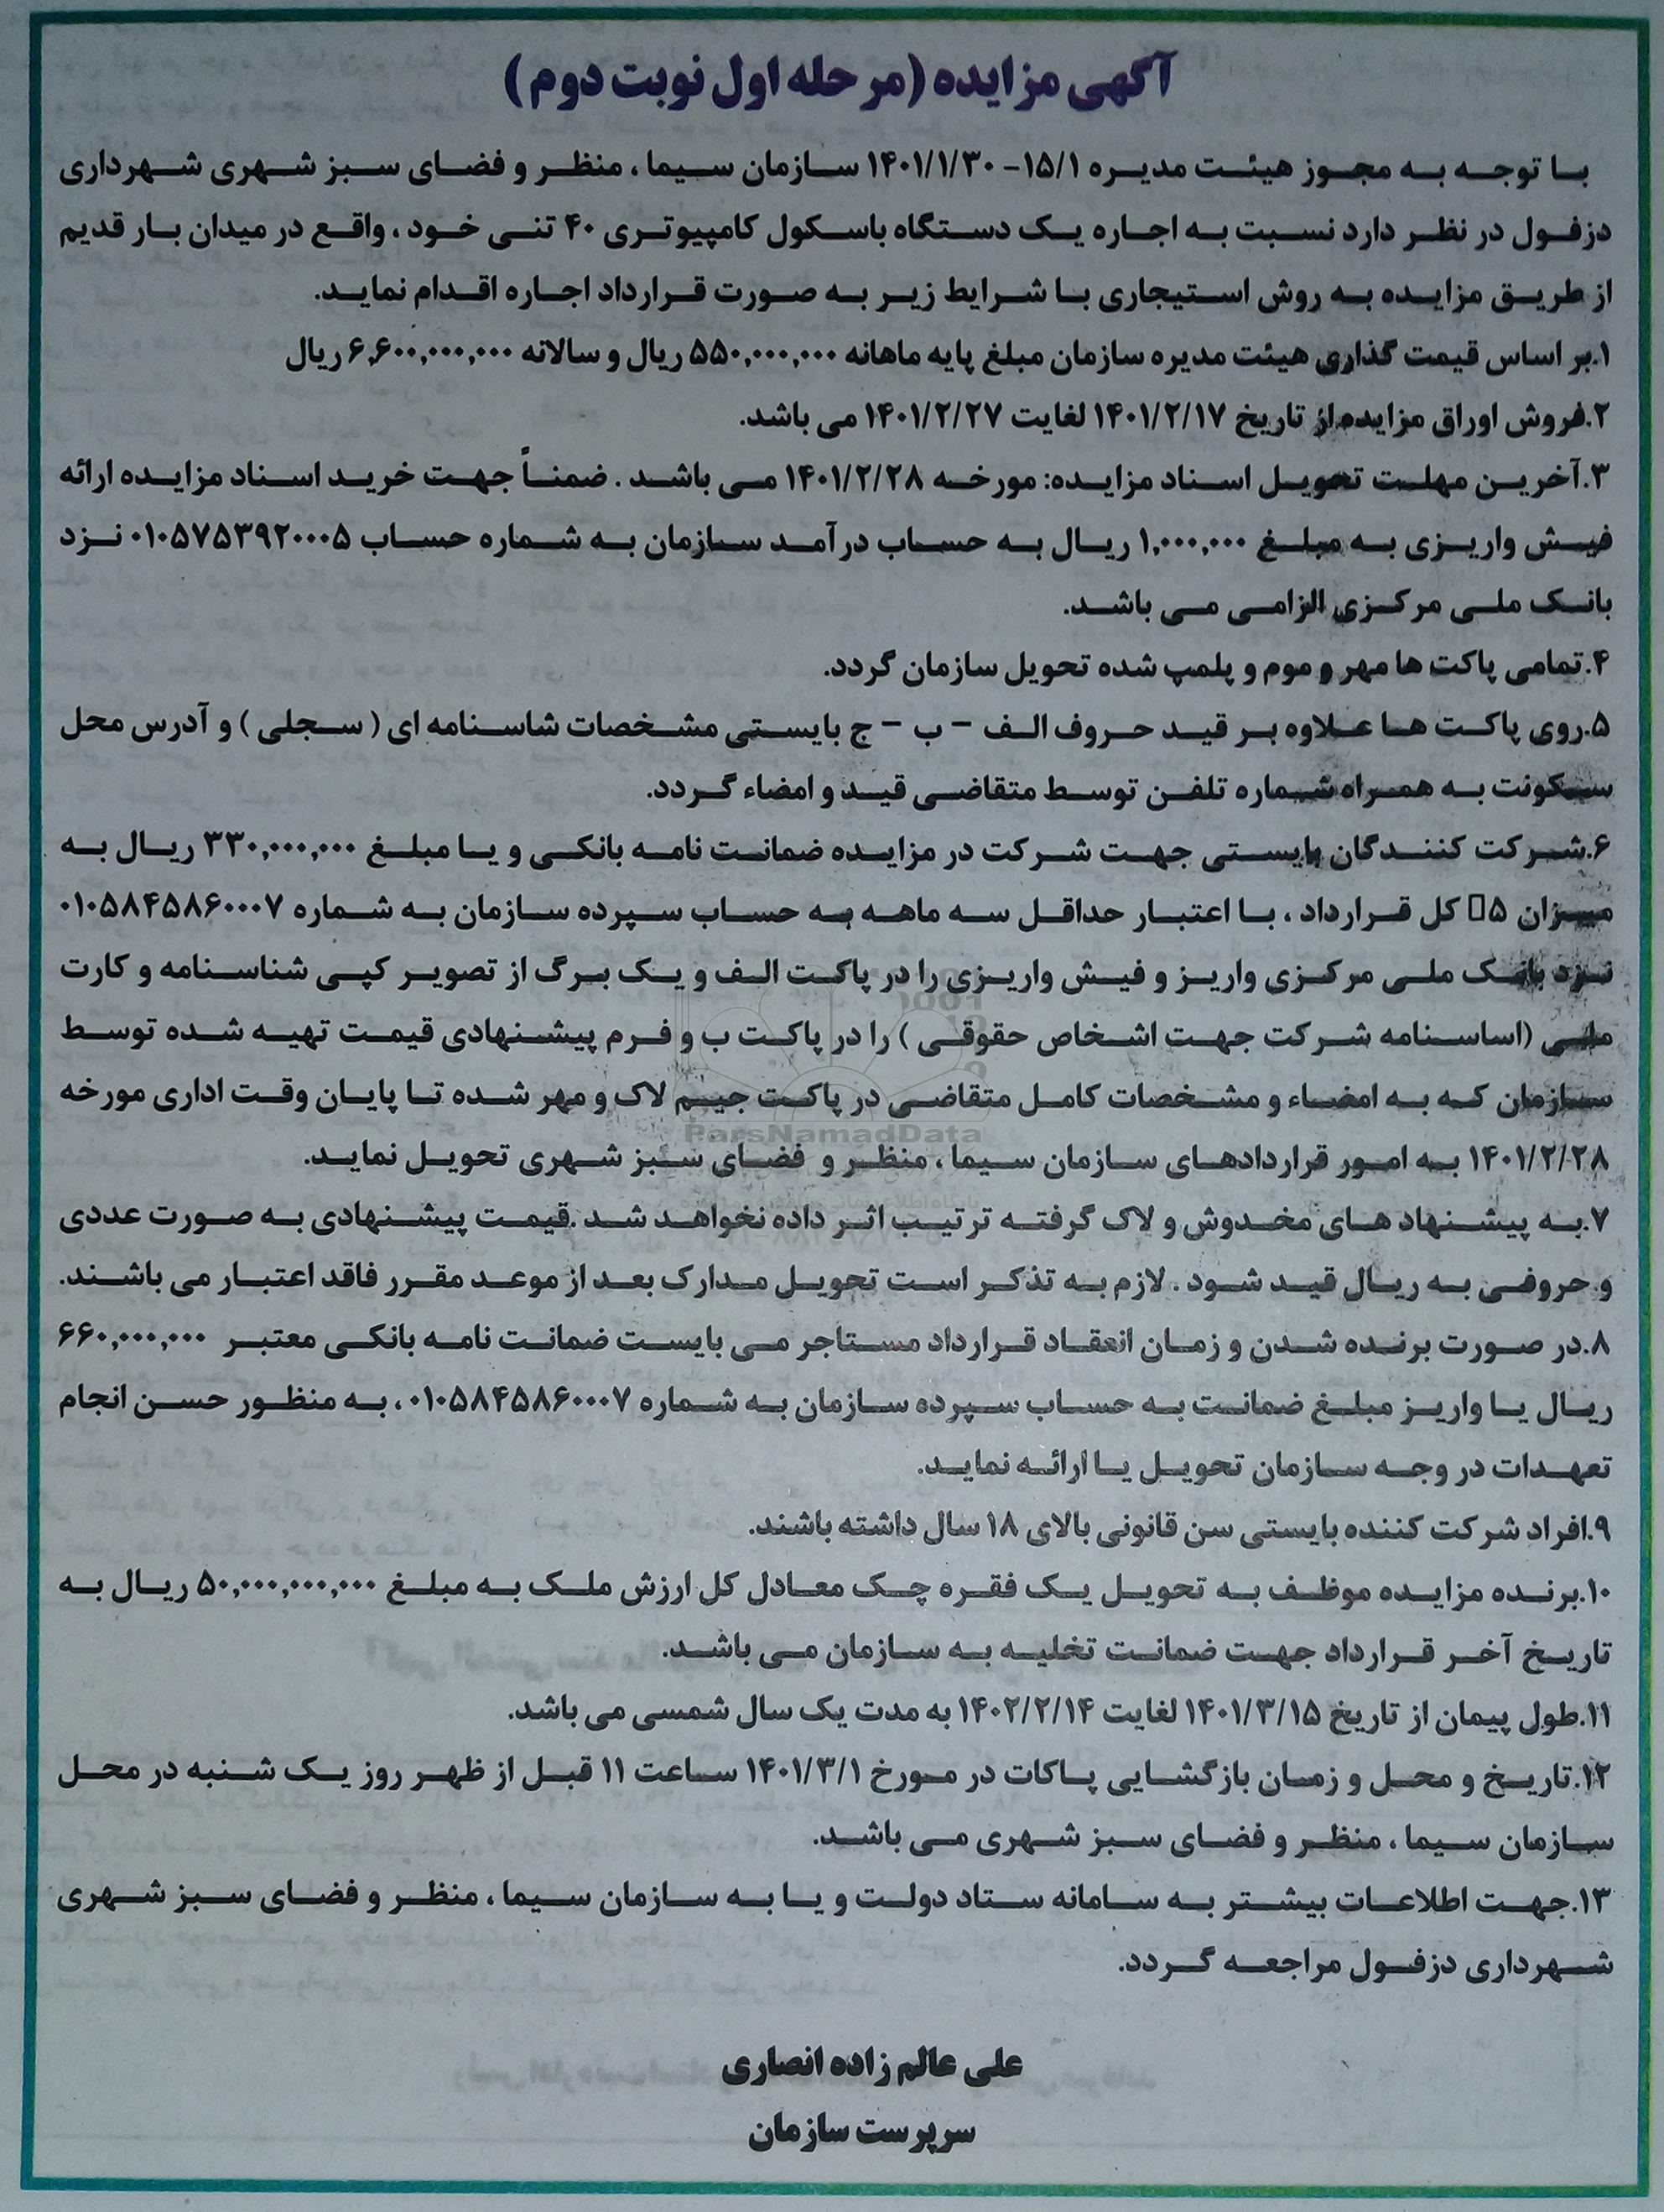 آگهی مزایده (مرحله اول نوبت دوم)
با توجه به مجوز هیئت مدیره ۱۵/۱- ۱۴۰۱/۱/۳۰ سازمان سیما ، منظر و فضای سبز شهری شهرداری
دزفول در نظر دارد نسبت به اجاره یک دستگاه باسکول کامپیوتری ۴۰ تنی خود ، واقع در میدان بار قدیم
از طریق مزایده به روش استیجاری با شرایط زیر به صورت قرارداد اجاره اقدام نماید.
۱.بر اساس قیمت گذاری هیئت مدیره سازمان مبلغ پایه ماهانه ۵۵۰,۰۰۰,۰۰۰ ریال و سالانه ۶,۶۰۰,۰۰۰,۰۰۰ ریال
۲.فروش اوراق مزایده از تاریخ ۱۴۰۱/۲/۱۷ لغایت ۱۴۰۱/۲/۲۷ می باشد.
۳.آخرین مهلت تحویل اسناد مزایده: مورخه ۱۴۰۱/۲/۲۸ می باشد . ضمناً جهت خرید اسناد مزایده ارائه
فیش واریزی به مبلغ ۱,۰۰۰,۰۰۰ ریال به حساب درآمد سازمان به شماره حساب ۰۱۰۵۷۵۳۹۲۰۰۰۵ نزد
بانک ملی مرکزی الزامی می باشد.
۴.تمامی پاکت ها مهر و موم و پلمپ شده تحویل سازمان گردد.
۵.روی پاکت ها علاوه بر قید حروف الف – ب – ج بایستی مشخصات شاسنامه ای ( سجلی ) و آدرس محل
سکونت به همراه شماره تلفن توسط متقاضی قید و امضاء گردد.
۶.شرکت کنندگان بایستی جهت شرکت در مزایده ضمانت نامه بانکی و یا مبلغ ۳۳۰,۰۰۰,۰۰۰ ریال به
میزان ۵ کل قرارداد ، با اعتبار حداقل سه ماهه به حساب سپرده سازمان به شماره ۰۱۰۵۸۴۵۸۶۰۰۰۷
نزد بانک ملی مرکزی واریز و فیش واریزی را در پاکت الف و یک برگ از تصویر کپی شناسنامه و کارت
ملی (اساسنامه شرکت جهت اشخاص حقوقی ) را در پاکت ب و فرم پیشنهادی قیمت تهیه شده توسط
سازمان که به امضاء و مشخصات کامل متقاضی در پاکت جیم لاک و مهر شده تا پایان وقت اداری مورخه
۱۴۰۱/۲/۲۸ به امور قراردادهای سازمان سیما ، منظر و فضای سبز شهری تحویل نماید.
۷.به پیشنهاد های مخدوش و لاک گرفته ترتیب اثر داده نخواهد شد .قیمت پیشنهادی به صورت عددی
و حروفی به ریال قید شود . لازم به تذکر است تحویل مدارک بعد از موعد مقرر فاقد اعتبار می باشند.
۸.در صورت برنده شدن و زمان انعقاد قرارداد مستاجر می بایست ضمانت نامه بانکی معتبر ۶۶۰,۰۰۰,۰۰۰
ریال یا واریز مبلغ ضمانت به حساب سپرده سازمان به شماره ۰۱۰۵۸۴۵۸۶۰۰۰۷ ، به منظور حسن انجام
تعهدات در وجه سازمان تحویل یا ارائه نماید.
۹.افراد شرکت کننده بایستی سن قانونی بالای ۱۸ سال داشته باشند.
۱۰.برنده مزایده موظف به تحویل یک فقره چک معادل کل ارزش ملک به مبلغ ۵۰,۰۰۰,۰۰۰,۰۰۰ ریال به
تاریخ آخر قرارداد جهت ضمانت تخلیه به سازمان می باشد.
۱۱.طول پیمان از تاریخ ۱۴۰۱/۳/۱۵ لغایت ۱۴۰۲/۲/۱۴ به مدت یک سال شمسی می باشد.
۱۲.تاریخ و محل و زمان بازگشایی پاکات در مورخ ۱۴۰۱/۳/۱ ساعت ۱۱ قبل از ظهر روز یک شنبه در محل
سازمان سیما ، منظر و فضای سبز شهری می باشد.
۱۳.جهت اطلاعات بیشتر به سامانه ستاد دولت و یا به سازمان سیما ، منظر و فضای سبز شهری
شهرداری دزفول مراجعه گردد.
علی عالم زاده انصاری
سرپرست سازمان
ParsNamadData